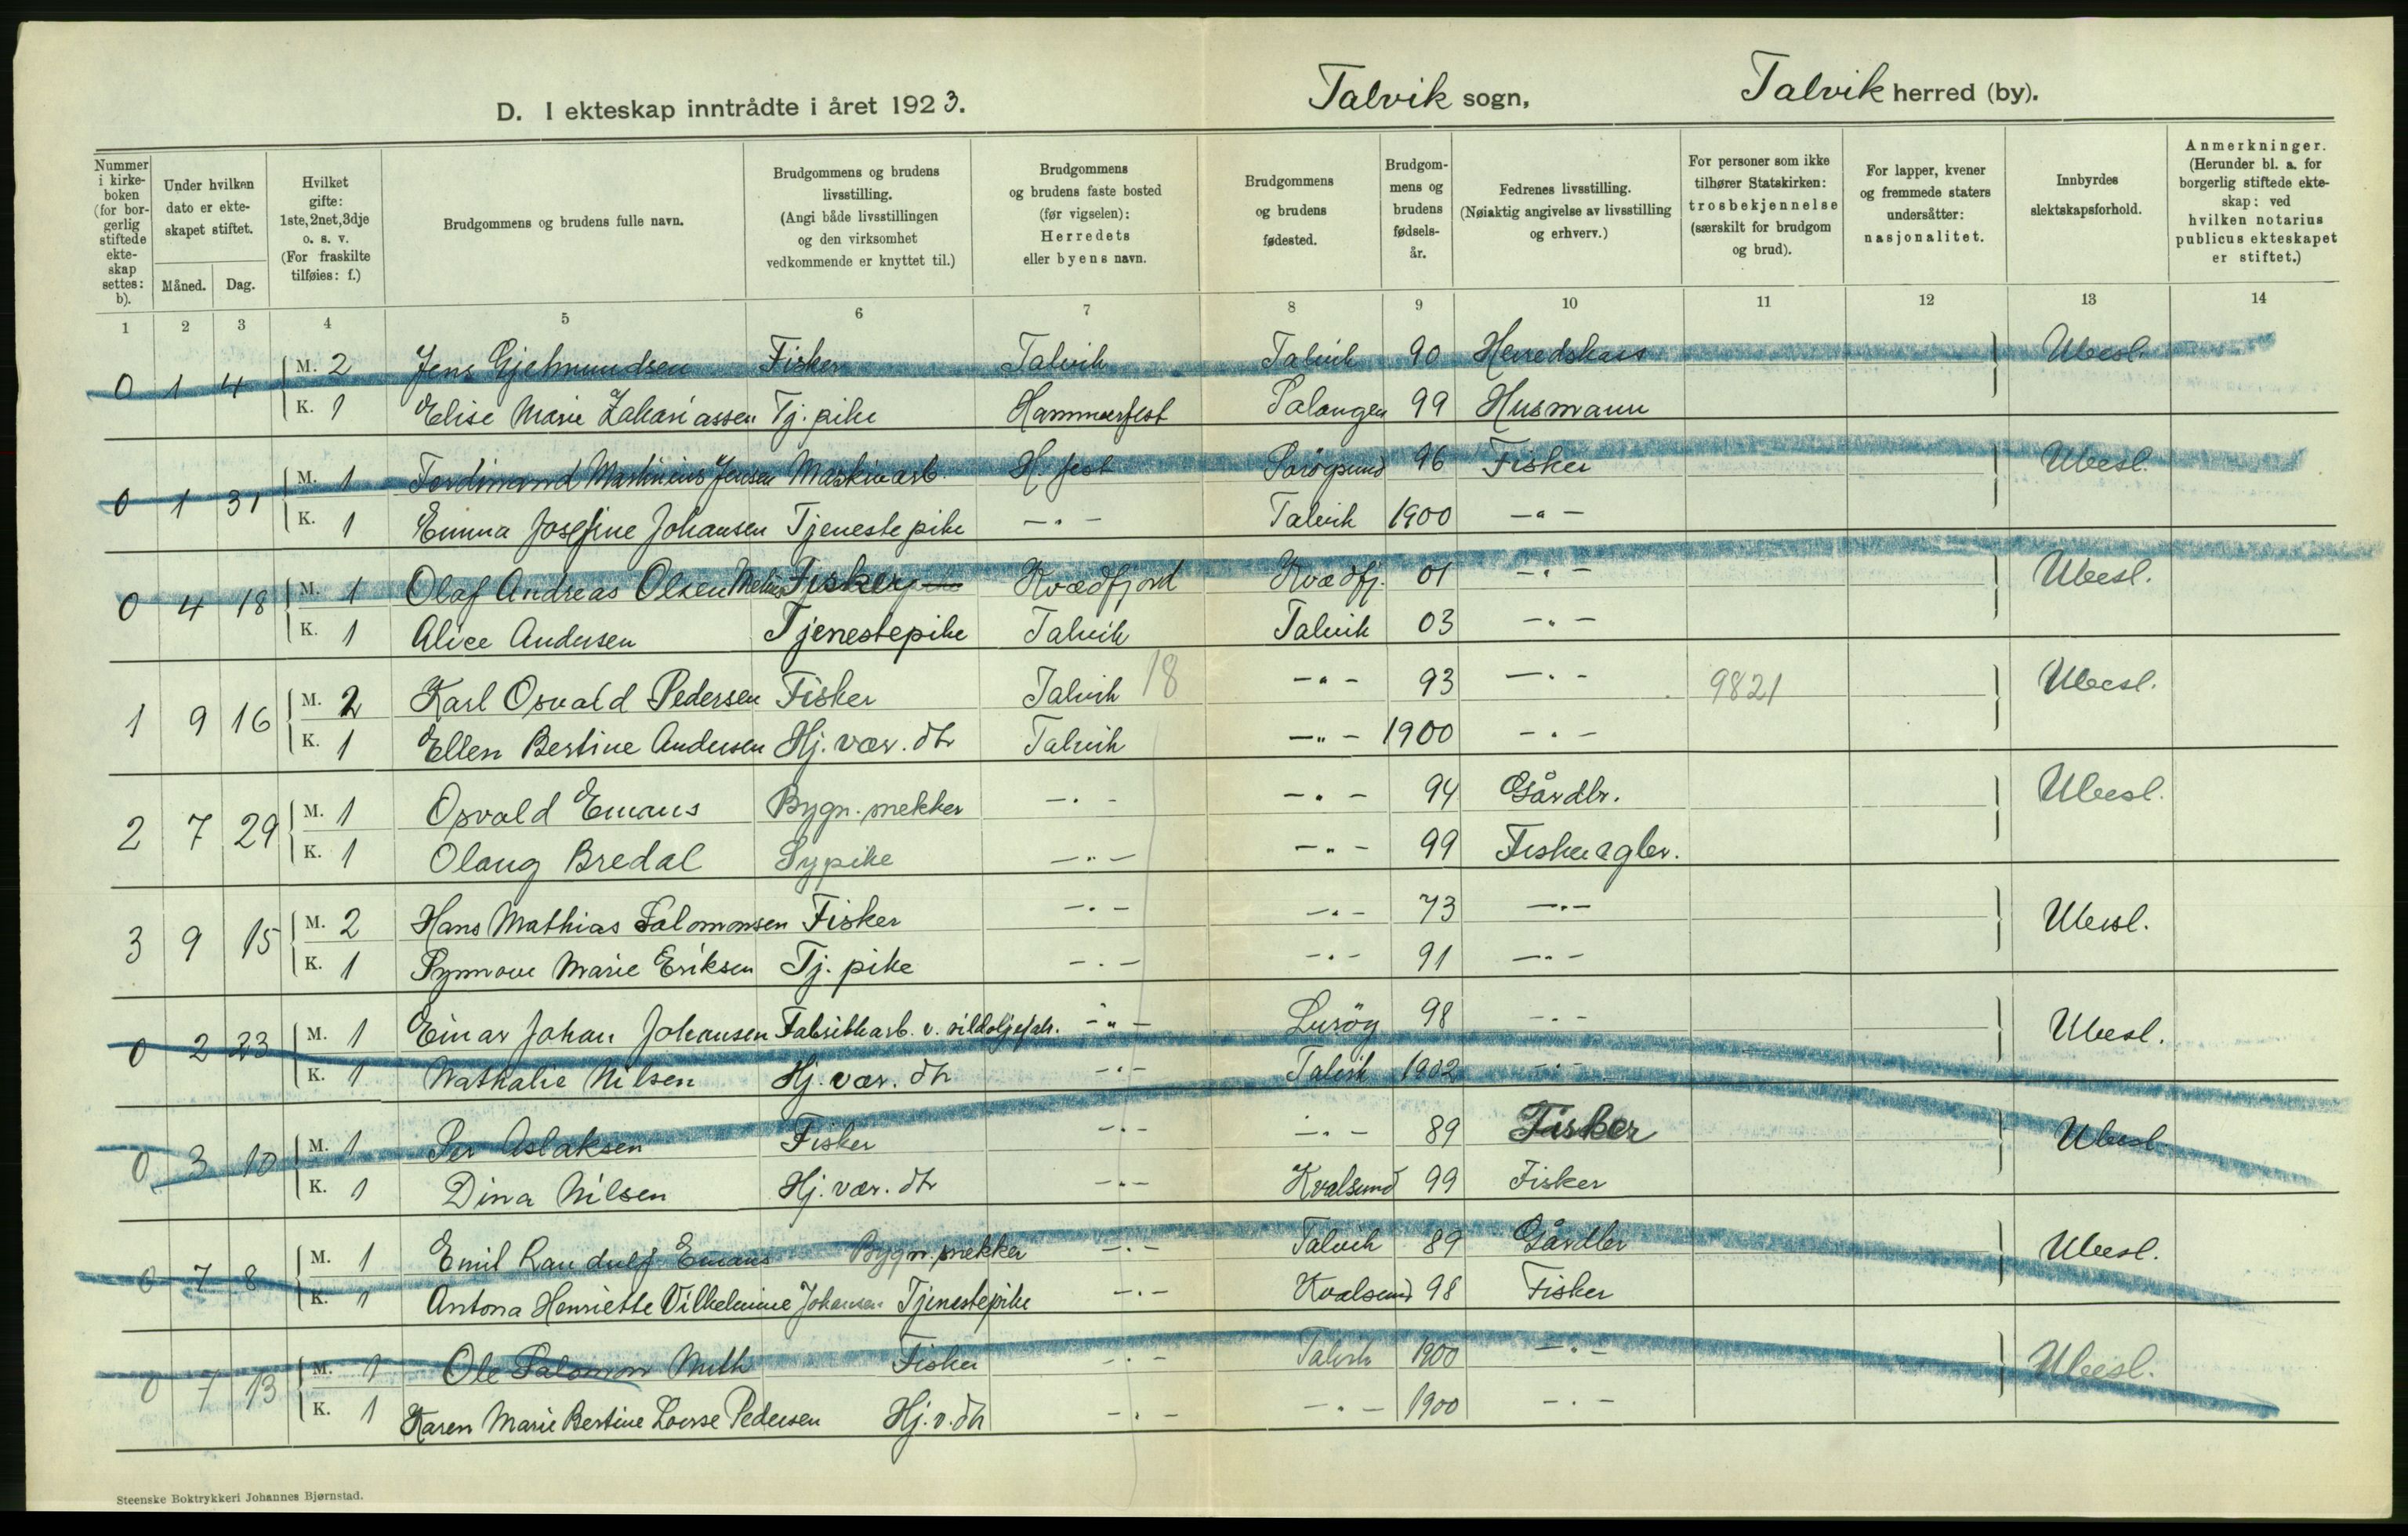 D. I ekteskap inntrådte i året 1923. Talvik sogn, Talvik herred (by).
Nummer i kirkeboken (for borgerlig stiftede ekteskap settes: b).
Under hvilken dato er ekteskapet stiftet. Måned. Dag.
Hvilket gifte: 1ste, 2net, 3dje o. s. v. (For fraskilte tilføies: f.)
Brudgommens og brudens fulle navn.
Brudgommens og brudens livsstilling. (Angi både livsstillingen og den virksomhet vedkommende er knyttet til.)
Brudgommens og brudens faste bosted (før vigselen): Herredets eller byens navn.
Brudgommens og brudens fødested.
Brudgommens og brudens fødselsår.
Fedrenes livsstilling. (Nøiaktig angivelse av livsstilling og erhverv.)
For personer som ikke tilhører Statskirken: trosbekjennelse (særskilt for brudgom og brud).
For lapper, kvener og fremmede staters undersåtter: nasjonalitet.
Innbyrdes slektskapsforhold.
Anmerkninger. (Herunder bl. a. for borgerlig stiftede ekteskap: ved hvilken notarius publicus ekteskapet er stiftet.)
1 2 3 4 5 6 7 8 9 10 11 12 13 14
0 1 4 M. 2 Jens Gjelmundsen Fisker Talvik Talvik 90 Herredskass Ubesl.
K. 1 Elise Marie Zakariassen Tj. pike Hammerfest Salangen 99 Husmann
0 1 31 M. 1 Ferdinand Martinius Jensen Maskinarb. H. fest Sørøysund 96 Fisker Ubesl.
K. 1 Emma Josefine Johansen Tjenestepike -"- Talvik 1900 -"-
0 4 18 M. 1 Olaf Andreas Olsen Fisker Kvædfjord Kvædfj. 01 -"- Ubesl.
K. 1 Alice Andersen Tjenestepike Talvik Talvik 03 -"-
1 9 16 M. 2 Karl Osvald Pedersen Fisker Talvik 18 -"- 93 -"- 9821 Ubesl.
K. 1 Ellen Bertine Andersen Hj. vær. dtr Talvik -"- 1900 -"-
2 7 29 M. 1 Osvald Emaus Bygn. snekker -"- -"- 94 Gårdbr. Ubesl.
K. 1 Olaug Bredal Sypike -"- -"- 99 Fisker og br.
3 9 15 M. 2 Hans Mathias Salomonsen Fisker -"- -"- 73 -"- Ubesl.
K. 1 Synnøve Marie Eriksen Tj. pike -"- -"- 91 -"-
0 2 23 M. 1 Einar Johan Johansen Fabrikkarb. v. sildoljefabr. -"- Lurøy 98 -"- Ubesl.
K. 1 Nathalie Nilsen Hj. vær. dtr -"- Talvik 1902 -"-
0 3 10 M. 1 Per Aslaksen Fisker -"- -"- 89 Fisker Ubesl.
K. 1 Dina Nilsen Hj. vær. dtr -"- Kvalsund 99 Fisker
0 7 8 M. 1 Emil Randulf Emaus Bygn. snekker -"- Talvik 89 Gårdbr Ubesl.
K. 1 Antona Henriette Vilhelmine Johansen Tjenestepike -"- Kvalsund 98 Fisker
0 7 13 M. 1 Ole Salomon Muth Fisker -"- Talvik 1900 -"- Ubesl.
K. 1 Karen Marie Bertine Lovise Pedersen Hj. v. dtr -"- -"- 1900 -"-
Steenske Boktrykkeri Johannes Bjørnstad.